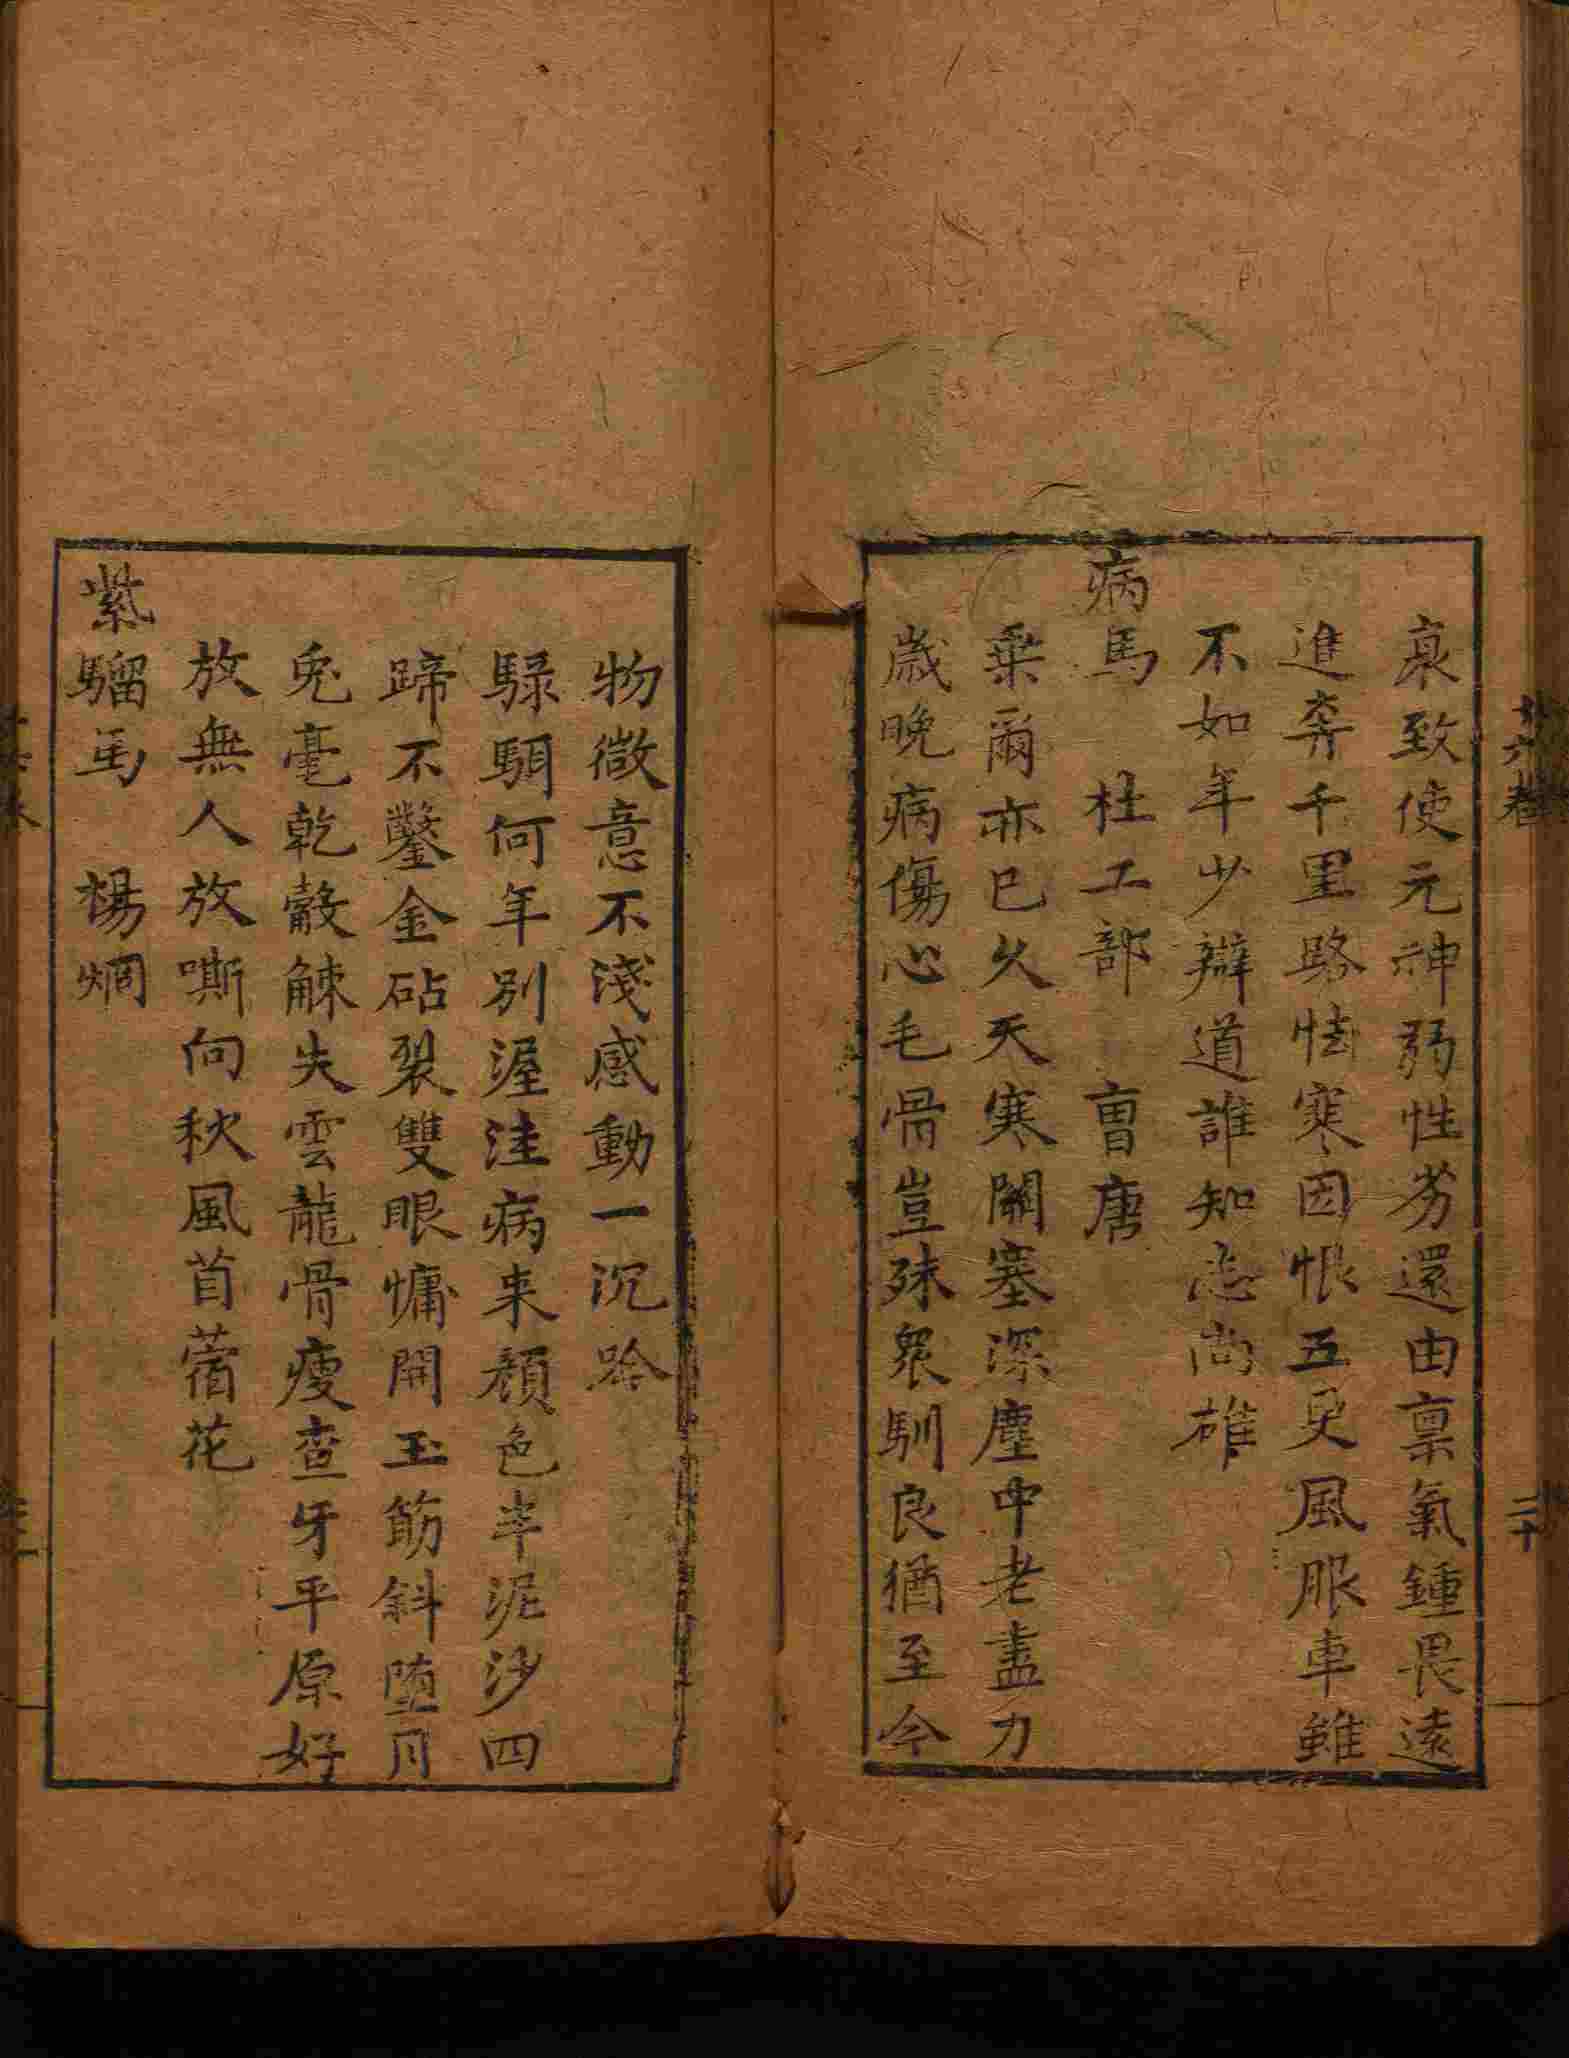 廿六卷
二十
衰致使元神弱性劣還由禀氣鍾畏遠
進奔千里路怯寒因恨五更風服車雖
不如年少辯道誰知志尚雄
病馬　杜工部　曺唐
乗爾亦已久天寒關塞深塵中老盡力
歲晚病傷心毛骨豈殊衆馴良猶至今
物微意不淺感動一沉吟
騄駬何年別渥洼病来顔色半泥沙四
蹄不鑿金砧裂雙眼慵開玉筋斜堕月
兎毫乾觳觫失雲龍骨瘦查牙平原好
放無人放嘶向秋風苜蓿花
紫騮馬　楊烱